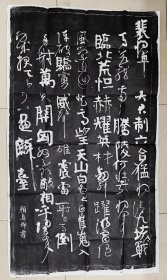 裴將軍 大君制六合猛將清九垓戰
馬若龍虎騰陵何壯哉將軍
臨北荒恒赫耀英材劍舞躍游電隨
風縈且迴登高望天山白雪正崔嵬入
陣破驕虜威聲雄震雷一射百馬倒
再射萬夫開匈奴不敢敵相呼歸去
來功成報天子可以畫麟臺
顏真卿書